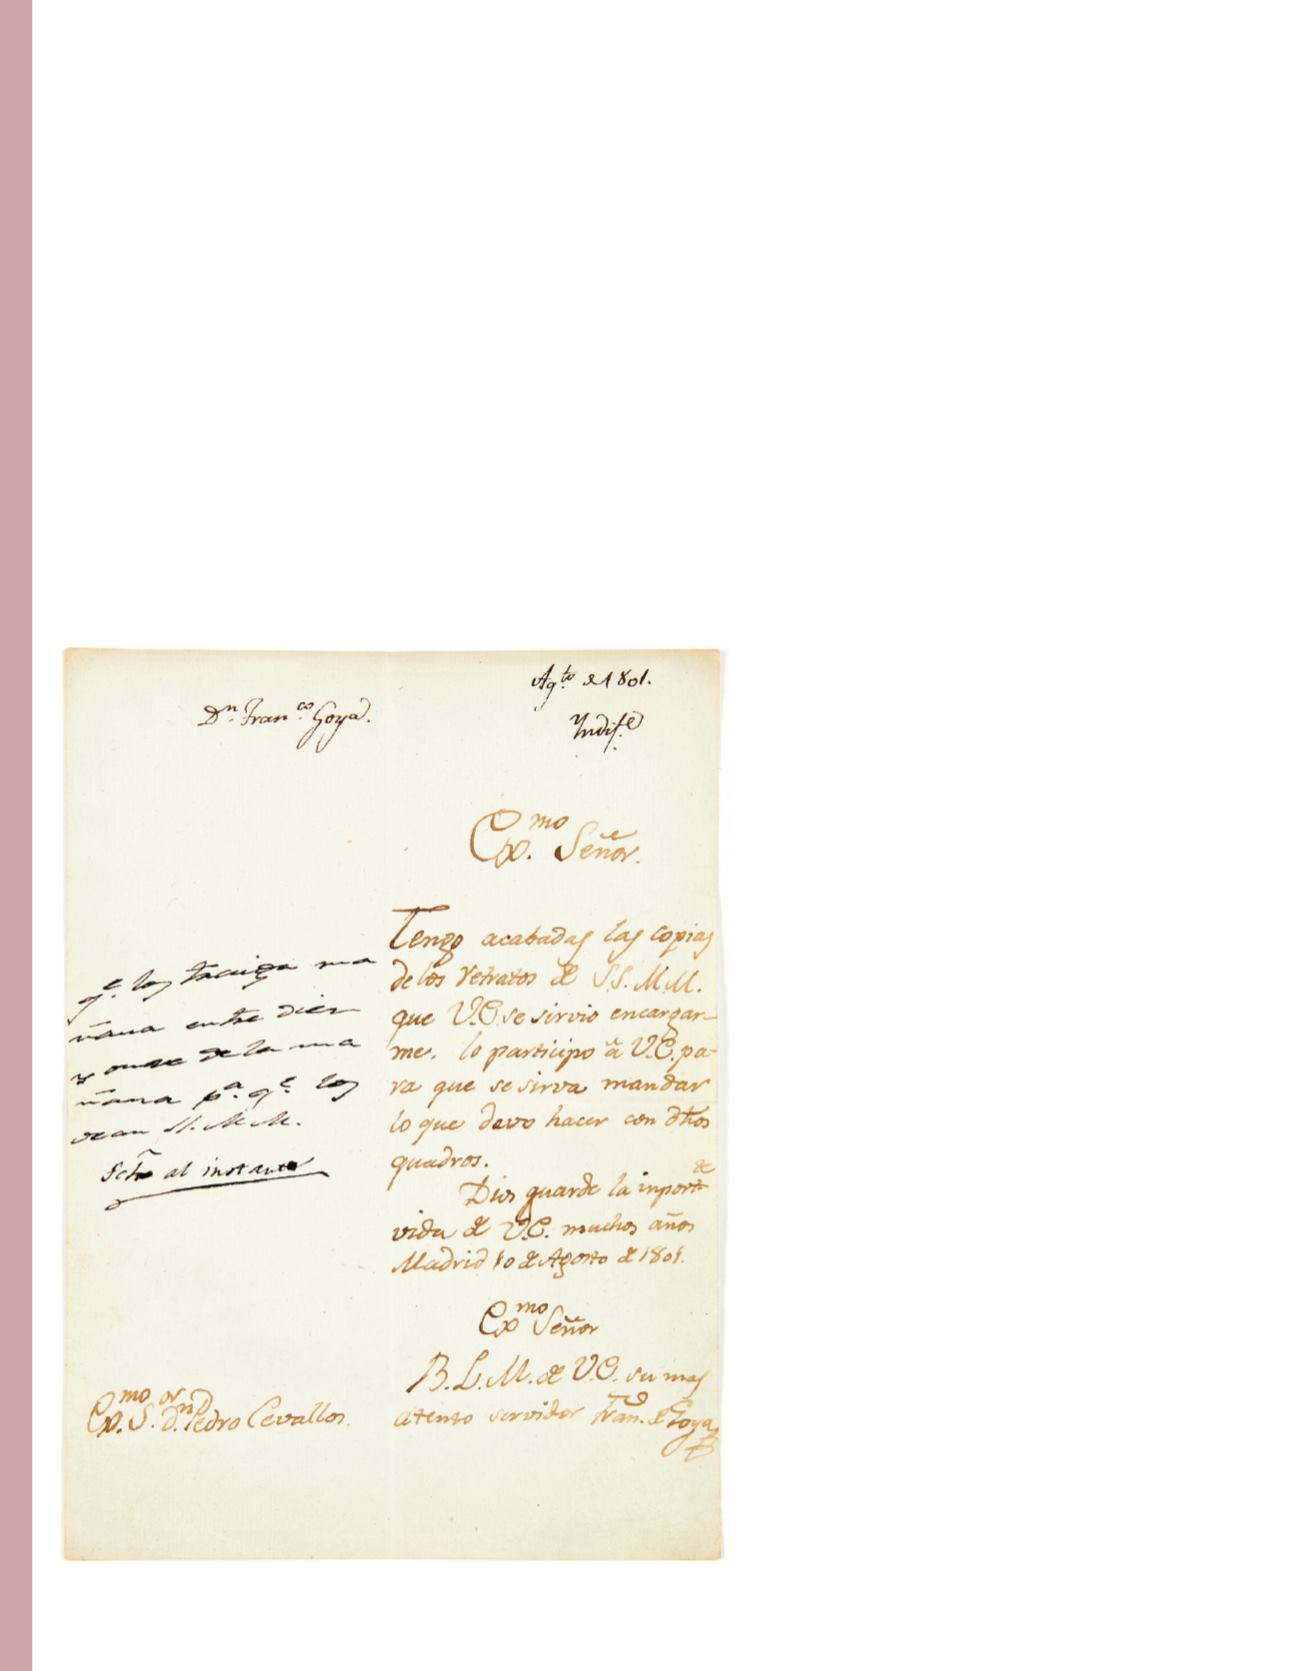 Agto. de 1801.
Dn. Franco. Goya.
Yndife.
Exmo. Señor.
Tengo acabadas las copias
de los retratos de S.S. M.M.
que V.E. se sirvio encargar-
me. lo participo á V.E. pa-
ra que se sirva mandar
lo que devo hacer con dhos
quadros.
Dios guarde la inportte
vida de V.E. muchos años
Madrid 10 de Agosto de 1801.
Exmo Señor
B.L.M. de V.E. su mas
atento servidor Franco. de Goya
qe. los traiga ma
ñana entre diez
y onze de la ma
ñana pa. qe. los
vean SS. M.M.
Fcho al instante
Exmo. Sor. Dn. Pedro Cevallos.